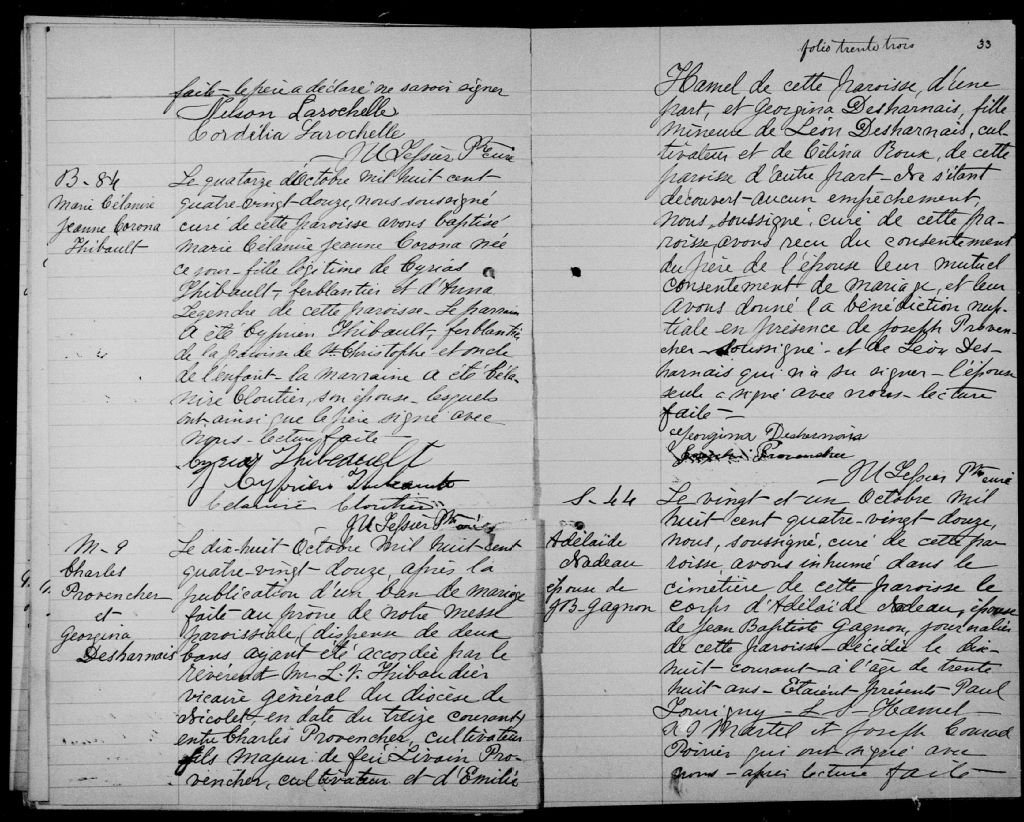 faite - le père a déclaré ne savoir signer
Nelson Larochelle
Cordélia Larochelle
JU Tessier Ptre curé
B - 84
Marie Célanire
Jeanne Corona
Thibault
Le quatorze d'Octobre mil huit cent
quatre-vingt-douze, nous soussigné
curé de cette paroisse avons baptisé
Marie Célanire Jeanne Corona née
ce jour - fille légitime de Cyrias
Thibault, ferblantier et d'Anna
Legendre de cette paroisse - Le parrain
a été Cyprien Thibault, ferblantier,
de la paroisse de St. Christophe et oncle
de l'enfant - la marraine a été Céla-
nire Cloutier, son épouse - lesquels
ont ainsi que le père signé avec
nous - lecture faite -
Cyrias Thibeault
Cyprien Thibeault
Célanire Cloutier
JU Tessier Ptre curé
M - 9
Charles
Provencher
et
Georgina
Desharnais
Le dix-huit Octobre mil huit cent
quatre-vingt-douze, après la
publication d'un ban de mariage
faite au prône de notre messe
paroissiale, (dispense de deux
bans ayant été accordée par le
révérend Mr L. V. Thibaudier
vicaire général du diocèse de
Nicolet, en date du treize courant)
entre Charles Provencher, cultivateur
fils majeur de feu Livain Pro-
vencher, cultivateur et d'Emilie
folio trente trois
33
Hamel de cette paroisse, d'une
part, et Georgina Desharnais, fille
mineure de Léon Desharnais, cul-
tivateur et de Célina Roux, de cette
paroisse d'autre part - Ne s'étant
découvert aucun empêchement,
nous, soussigné, curé de cette pa-
roisse, avons reçu du consentement
du père de l'épouse leur mutuel
consentement de mariage, et leur
avons donné la bénédiction nup-
tiale en présence de Joseph Proven-
cher - soussigné - et de Léon Des-
harnais qui n'a su signer - l'épouse
seule a signé avec nous - lecture
faite -
Georgina Desharnais
Provencher
JU Tessier Ptre curé
S - 44
Adélaide
Nadeau
épouse de
JB - Gagnon
Le vingt et un Octobre mil
huit cent quatre-vingt douze,
nous, soussigné, curé de cette pa-
roisse, avons inhumé dans le
cimetière de cette paroisse le
corps d'Adélaide Nadeau, épouse
de Jean Baptiste Gagnon, journalier
de cette paroisse - décédée le dix-
huit courant - à l'âge de trente
huit ans - Etaient présents Paul
Tourigny - L S - Hamel -
Martel et Joseph Conrad
Poirier qui ont signé avec
nous - après lecture faite -